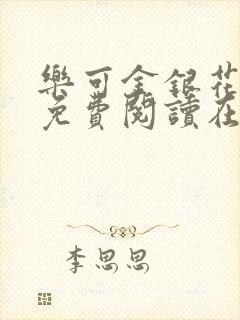 樂可金銀花
免費閱讀在
李思思